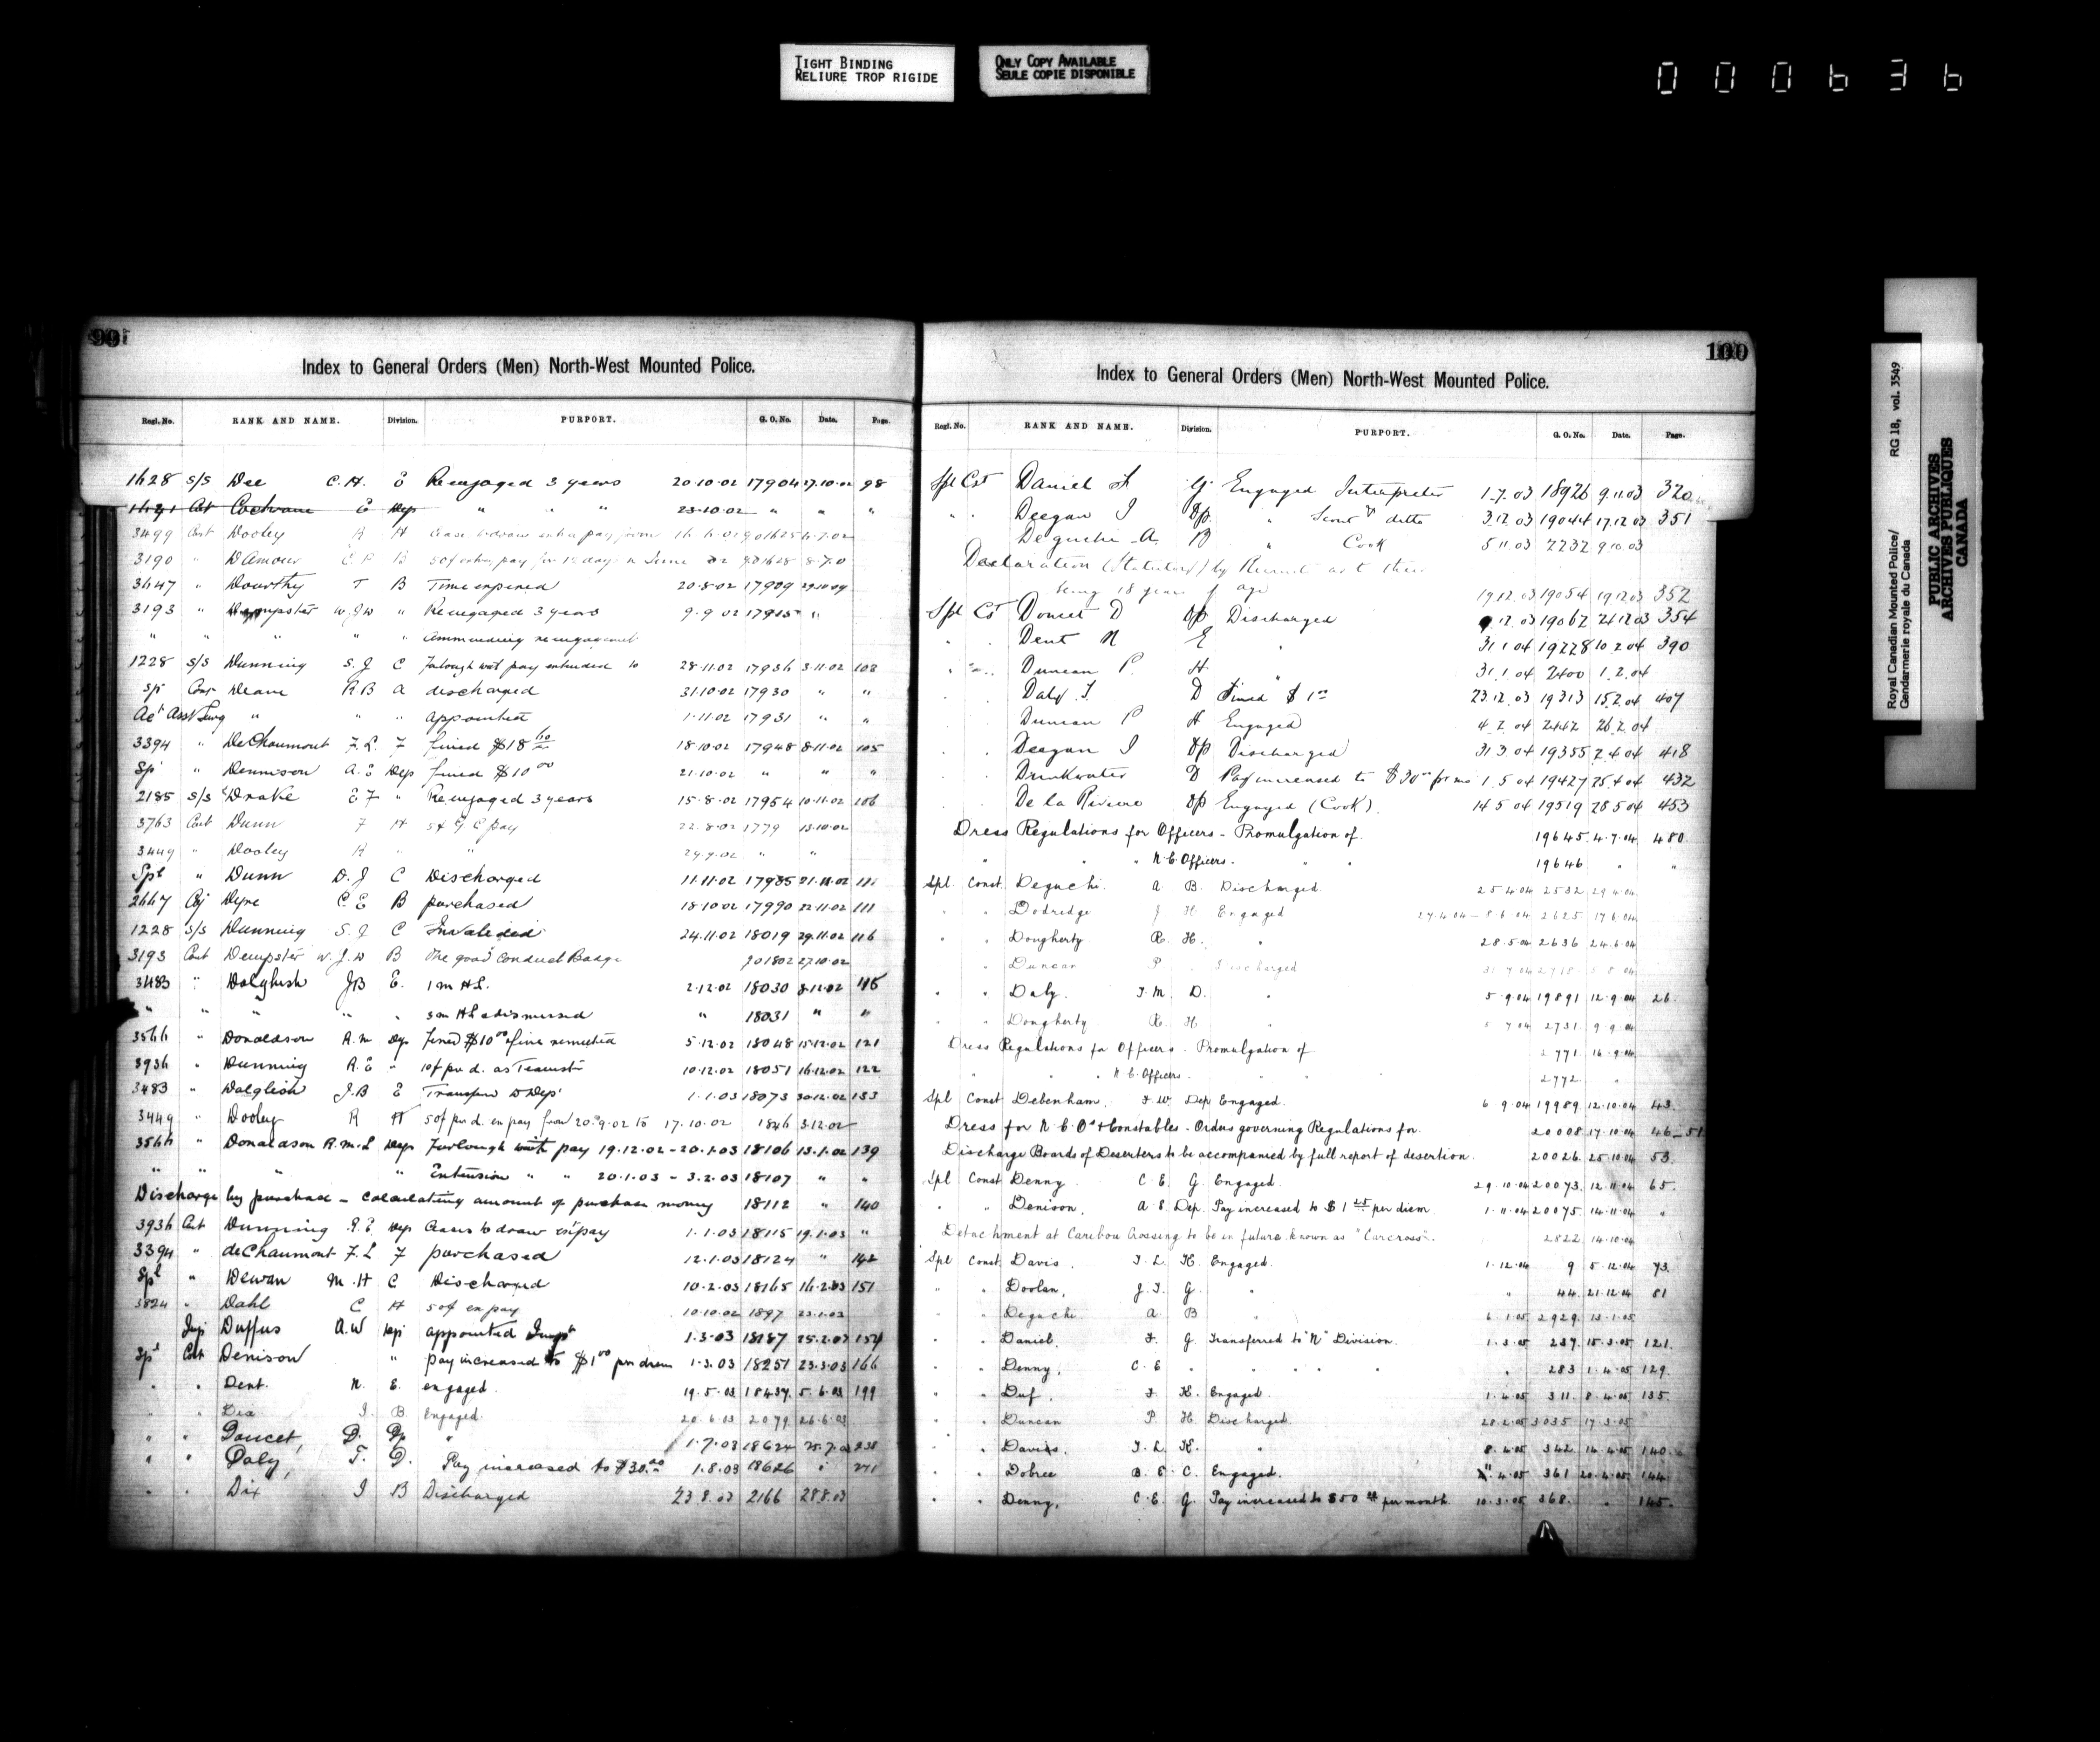 TIGHT BINDING
RELIURE TROP RIGIDE
ONLY COPY AVAILABLE
SEULE COPIE DISPONIBLE
000636
99
Index to General Orders (Men) North-West Mounted Police.
Regl. No. RANK AND NAME. Division. PURPORT. G. O. No. Date. Page.
1628 S/S Dee C.H. E Reengaged 3 years 20.10.02 17904 27.10.02 98
Cst Cochrane E Dep " " " 23.10.02 " " "
3499 Const Dooley R H
3190 " D'Amour B 50¢ extra pay for 12 days in June
3647 " Dourthy T B Time expired 20.8.02 17909
3193 " Dempster W.J.W " Reengaged 3 years 9.9.02 17915 "
" " " " " Ammending reengagement
1228 S/S Dunning S.J C Furlough with pay extended to 28.11.02 17936 3.11.02 102
Sp Const Deane R B A discharged 31.10.02 17930 " "
Act Asst Surg " " " appointed 1.11.02 17931 " "
3394 " DeChaumont F.L. F fined $18 18.10.02 17948 8.11.02 105
Sp " Dennison A.E Dep fined $10 00 21.10.02 " " "
2185 S/S Drake E F " Reengaged 3 years 15.8.02 17954 10.11.02 106
3763 Const Dunn F H 5¢ G.C pay 22.8.02 1779 13.10.02
3449 " Dooley R " " 29.9.02 " "
Spl " Dunn D.J C Discharged 11.11.02 17985 21.11.02 111
2667 Cpl Dyre C E B purchased 18.10.02 17990 22.11.02 111
1228 S/S Dunning S.J C Invalided 24.11.02 18019 29.11.02 116
3193 Const Dempster W.J.W B The good Conduct Badge 27.10.02
3483 " Dalglish JB E. 1 m HL. 2.12.02 18030 8.12.02 115
" " " " " 3 m HL & dismissed " 18031 " "
3566 " Donaldson R.M Dep fined $10 00 fine remitted 5.12.02 18048 15.12.02 121
3936 " Dunning R.E " 10¢ per d. as Teamster 10.12.02 18051 16.12.02 122
3483 " Dalglish J.B E Transfer to Dep 1.1.03 18073 30.12.02 133
3449 " Dooley R H 50¢ per d. ex pay from 20.9.02 to 17.10.02 1846 3.12.02
3566 " Donaldson R.M.L Dep Furlough with pay 19.12.02 - 20.1.03 18106 13.1.02 139
" " " " Extension " " 20.1.03 - 3.2.03 18107 " "
Discharge by purchase - Calculating amount of purchase money 18112 " 140
3936 Const Dunning R.E Dep Ceases to draw ex pay 1.1.03 18115 19.1.03 "
3394 " deChaumont F.L F purchased 12.1.03 18124 " 142
Spl " Dewan M.H C Discharged 10.2.03 18165 16.2.03 151
3824 " Dahl C H 50¢ ex pay 10.10.02 1897 23.1.03
Insp Duffus A.W Dep appointed Insp 1.3.03 18187 25.2.03 154
Spl Const Denison " pay increased to $1 00 per diem 1.3.03 18251 23.3.03 166
" " Dent. N. E. engaged. 19.5.03 18437 5.6.03 199
" " Dix I. B. Engaged. 20.6.03 2079 26.6.03
" " Doucet, D. Dp " 1.7.03 18624 238
" " Daly, T. D. Pay increased to $30.00 1.8.03 18626 "
" " Dix I B Discharged 23.8.03 2166 28.8.03
100
Index to General Orders (Men) North-West Mounted Police.
Regl. No. RANK AND NAME. Division. PURPORT. G. O. No. Date. Page.
Spl Cst Daniel F G Engaged Interpreter 1.7.03 18926 9.11.03 320
" " Deegan J Dp. " Scout & ditto 3.12.03 19044 17.12.03 351
Deguchi A. B " Cook 5.11.03 2232 9.10.03
Declaration (Statutory) by Recruit as to their
being 18 years of age 19.12.03 19054 19.12.03 352
Spl Cst Doucet D Dp Discharged 12.03 19067 21.12.03 354
" " Dent N E " 31.1.04 19228 10.2.04 390
" " Duncan P. H. " 31.1.04 2400 1.2.04
" " Daly T. D Fined $1 00 23.12.03 19313 15.2.04 407
" " Duncan P H Engaged 4.2.04 2442 26.2.04
" " Deegan J Dp Discharged 31.3.04 19355 2.4.04 418
" " Drinkwater D Pay increased to $30 00 per mo 1.5.04 19427 25.4.04 432
" " De la Riviere Dp Engaged (Cook). 14.5.04 19519 28.5.04 453
Dress Regulations for Officers - Promulgation of. 19645 4.7.04 480.
" " " N.C. Officers. " " 19646 " "
Spl. Const. Deguchi. A B. Discharged. 25.4.04 2532 29.4.04
" " Dodridge J H. Engaged 27.4.04 - 8.6.04 2625 17.6.04
" " Dougherty R. H. " 28.5.04 2636 24.6.04
" " Duncan P. " Discharged
" " Daly. T.M. D. " 5.9.04 19891 12.9.04 26.
" " Dougherty. R. H " 2731 9.9.04
Dress Regulations for Officers - Promulgation of 2771 16.9.04
" " " N.C. Officers. " " 2772 "
Spl Const Debenham. F.W. Dep Engaged. 6.9.04 19989 12.10.04 43.
Dress for N.C.O's & Constables - Orders governing Regulations for. 20008 17.10.04 46-51
Discharge Boards of Deserters to be accompanied by full report of desertion. 20026 25.10.04 53.
Spl Const Denny C.E. G. Engaged. 29.10.04 20073 12.11.04 65.
" " Denison. A.E. Dep. Pay increased to $1 25 per diem 1.11.04 20075 14.11.04 "
Detachment at Caribou Crossing to be in future known as "Carcross". 2822 14.10.04
Spl Const. Davis. T.L. K. Engaged. 1.12.04 9 5.12.04 73.
" " Doolan, J.J. G. " " 44. 21.12.04 81
" " Deguchi. A B " 6.1.05 2929 13.1.05
" " Daniel. F. G. Transferred to "N" Division. 1.3.05 237. 15.3.05 121.
" " Denny, C.E " " " " " 283 1.4.05 129.
" " Duf. F K. Engaged. 1.4.05 311. 8.4.05 135.
" " Duncan P. H. Discharged. 28.2.05 3035 17.3.05
" " Davies. T.L. K. " 8.4.05 342 14.4.05 140.
" " Dobree B.E. C. Engaged. 4.05 361 20.4.05 144
" " Denny, C.E. G. Pay increased to $50 00 per month. 10.3.05 368. " 145.
Royal Canadian Mounted Police/ RG 18, vol. 3549
Gendarmerie royale du Canada
PUBLIC ARCHIVES
ARCHIVES PUBLIQUES
CANADA